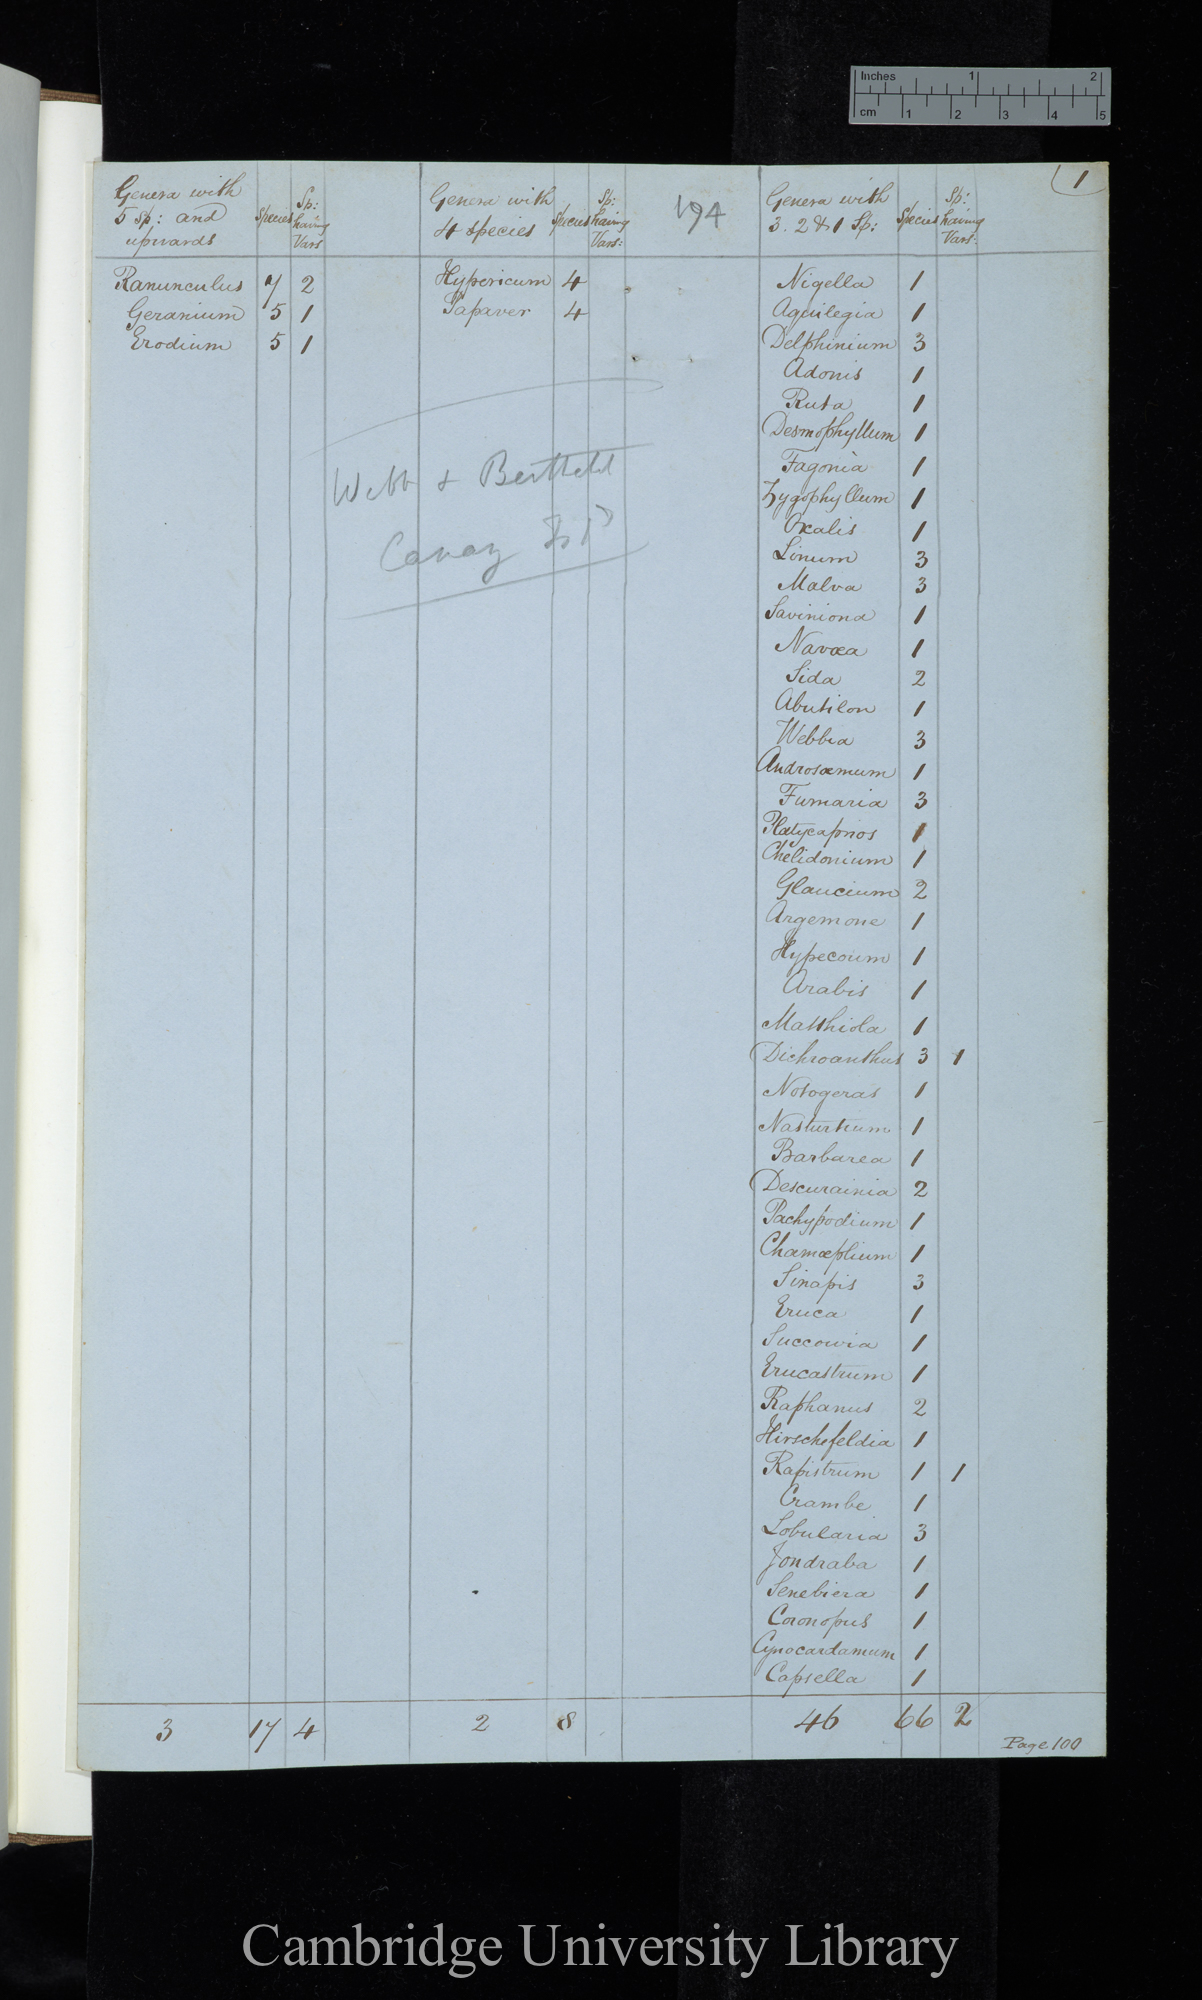 Inches 1 2
cm 1 2 3 4 5
1
194
Genera with 5 sp: and upwards
Species
Sp: having Vars
Ranunculus 7 2
Geranium 5 1
Erodium 5 1
3 17 4
Genera with 4 species
Species
Sp: having Vars:
Hypericum 4
Papaver 4
2 8
Webb &
Canary
Genera with 3. 2 & 1 Sp:
Species
Sp: having Vars:
Nigella 1
Aquilegia 1
Delphinium 3
Adonis 1
Ruta 1
Desmophyllum 1
Fagonia 1
Zygophyllum 1
Oxalis 1
Linum 3
Malva 3
Saviniona 1
Navæa 1
Sida 2
Abutilon 1
Webbia 3
Androsæmum 1
Fumaria 3
Platycapnos 1
Chelidonium 1
Glaucium 2
Argemone 1
Hypecoum 1
Arabis 1
Matthiola 1
Dichroanthus 3 1
Notogeras 1
Nasturtium 1
Barbarea 1
Descurainia 2
Pachypodium 1
Chamæplium 1
Sinapis 3
Eruca 1
Succowia 1
Erucastrum 1
Raphanus 2
Hirschefeldia 1
Rapistrum 1 1
Crambe 1
Lobularia 3
Jondraba 1
Senebiera 1
Coronopus 1
Cynocardamum 1
Capsella 1
46 66 2
Page 100
Cambridge University Library